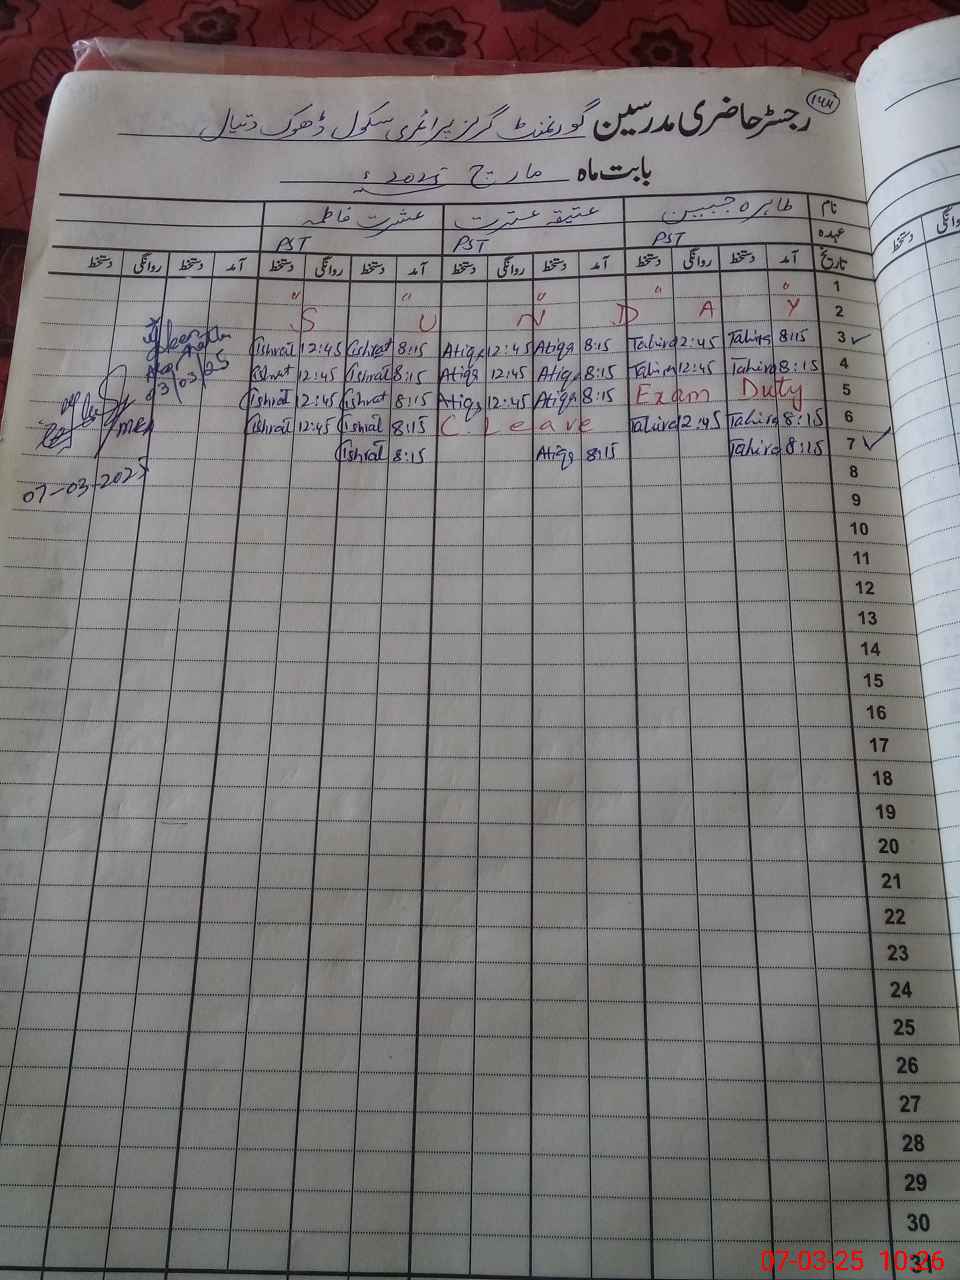 ۱۴۴
رجسٹر حاضری مدرسین گورنمنٹ گرلز پرائمری سکول ڈھوک دتیال
بابت ماہ مارچ 2025ء
نام طاہرہ جبیں عتیقہ عشرت عشرت فاطمہ
عہدہ PST PST PST
تاریخ آمد دستخط روانگی دستخط آمد دستخط روانگی دستخط آمد دستخط روانگی دستخط آمد دستخط روانگی دستخط
1 " " " " "
2 S U N D A Y
Ishrat 12:45 Ishrat 8:15 Atiqa 12:45 Atiqa 8:15 Tahira 12:45 Tahira 8:15 3 ✓
Ishrat 12:45 Ishrat 8:15 Atiqa 12:45 Atiqa 8:15 Tahira 12:45 Tahira 8:15 4
Ishrat 12:45 Ishrat 8:15 Atiqa 12:45 Atiqa 8:15 Exam Duty 5
Ishrat 12:45 Ishrat 8:15 C. Leave Tahira 12:45 Tahira 8:15 6
Ishrat 8:15 Atiqa 8:15 Tahira 8:15 7 ✓
03/03/25
MEA
07-03-2025
8
9
10
11
12
13
14
15
16
17
18
19
20
21
22
23
24
25
26
27
28
29
30
31
روانگی
دستخط
07-03-25 10:26